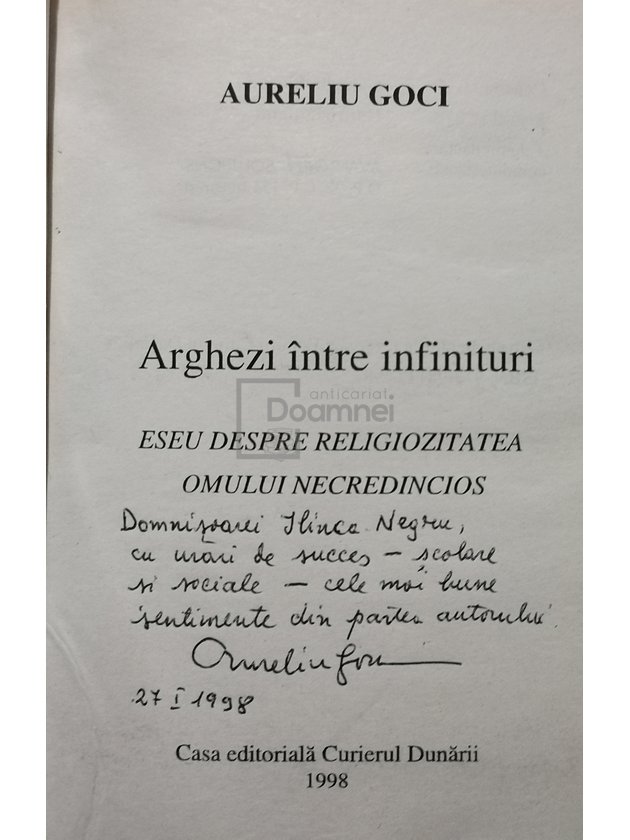 AURELIU GOCI
Arghezi între infinituri
anticariat
Doamnei
ESEU DESPRE RELIGIOZITATEA
OMULUI NECREDINCIOS
Domnișoarei Ilinca Negru,
cu urări de succes – școlare
și sociale – cele mai bune
sentimente din partea autorului
Aureliu Goci
27 I 1998
Casa editorială Curierul Dunării
1998